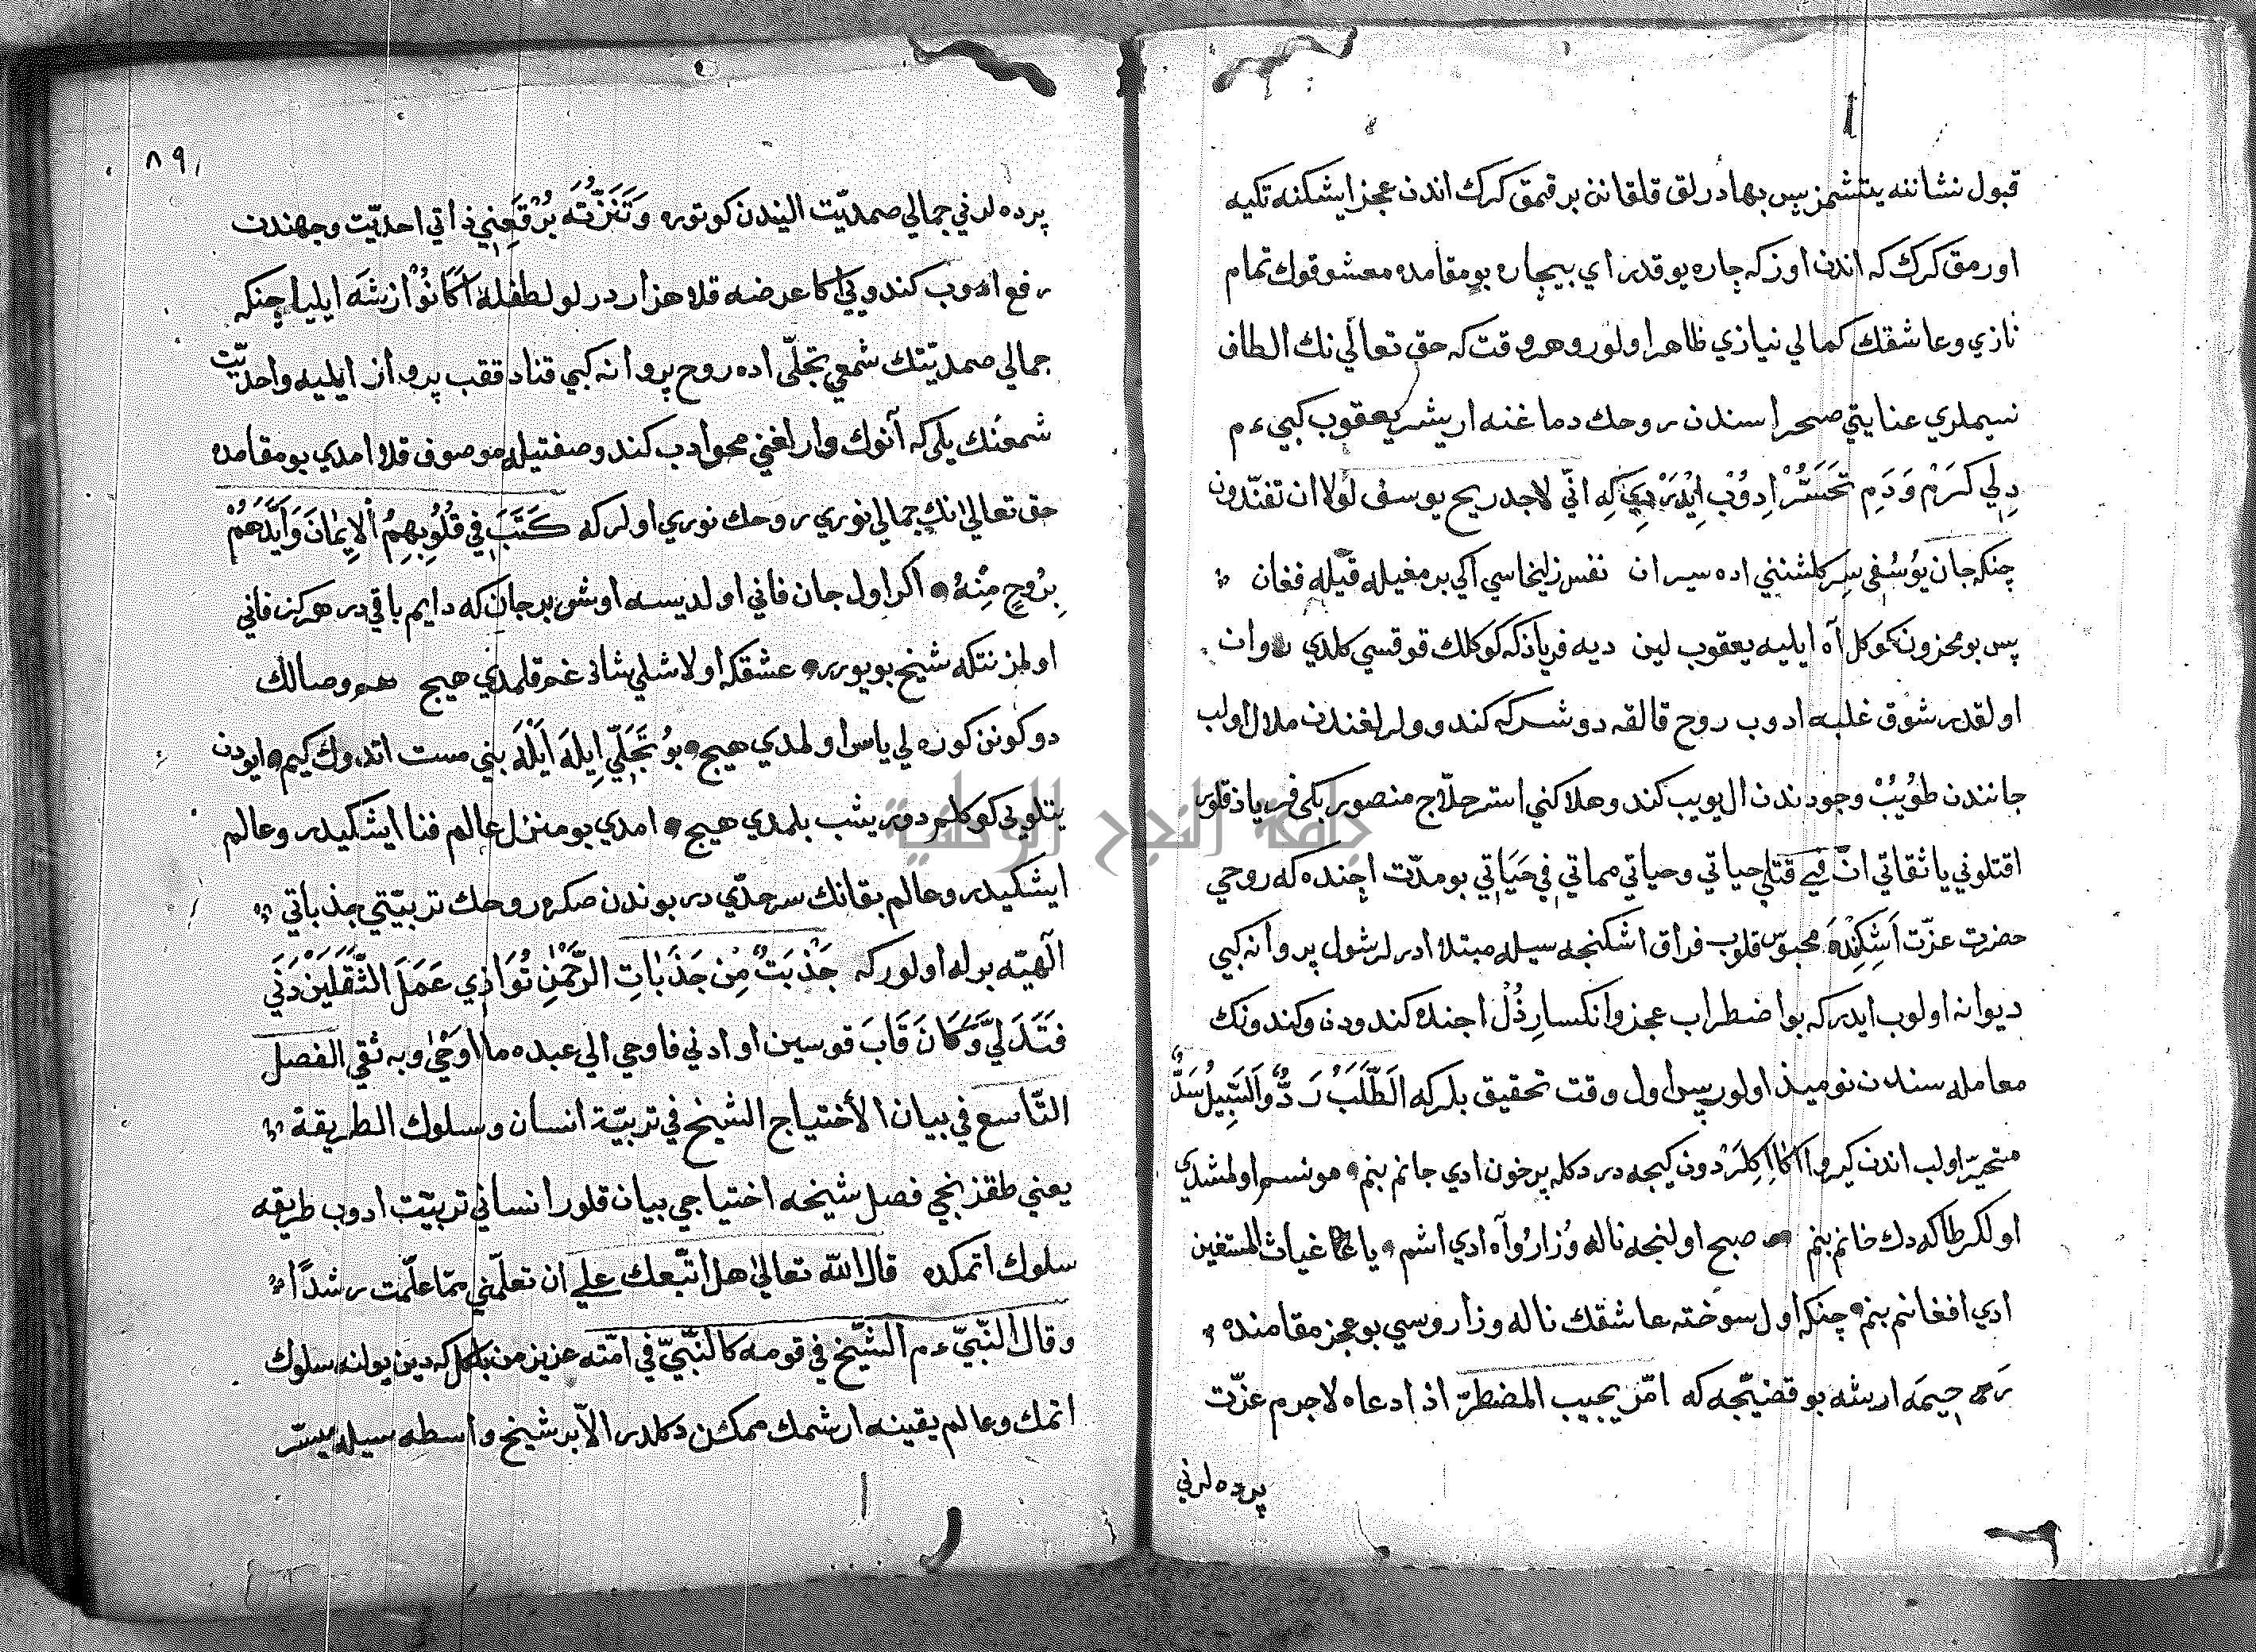 قبول نشاننه يتشمز پس بهادرلق قلقانن برقمق كرك اندن عجز ايشكنه تكيه
اورمق كرك كه اندن اوزكه چاره يوقدر اي بيچاره بو مقامده معشوقوك تمام
نازي وعاشقك كمالي نيازي ظاهر اولور وهر وقت كه حق تعالي نك الطاف
نسيملري عنايتي صحراسندن روحك دماغنه اريشر يعقوب كبي ءم
دلي كرم ودم تحسّر ادوب ايدر دي كه انّي لاجد ريح يوسف لولا ان تفنّدون
چنكه جان يوسفى سر كلشنني اده سيران نفس زليخاسي اكي برمغيله قيله فغان
پس بو محزون كوكل آه ايليه يعقوب لين ديه فرياذكه كوكلك قوقسي كلدي روان
اولقدر شوق غلبه ادوب روح قالقه دوشر كه كندو ولرلغندن ملال اولب
جانندن طويب وجودندن ال يويب كندو هلاكني استر حلاّج منصور بكى فرياذ قلور
اقتلوني يا ثقاتي انّ في قتلي حياتي وحياتي مماتي في حياتي بو مدّت اچنده كه روحي
حضرت عزّت اشكنده محبوس قلوب فراق اشكنجه سيله مبتلا ادرلر شول پروانه كبي
ديوانه اولوب ايدر كه بو اضطراب عجز وانكسار ذلّ اجنده كندودن وكندونك
معامله سندن نوميذ اولور پس اول وقت تحقيق بلر كه الطّلب ردّ والسّبيل سدّ
متحيّر اولب اندن كيرو دون كيجه درد كله پرخون ادي جانم بنم مونسم اولمشدي
اولكر طاكه دك خانم بنم صبح اولنجه ناله وزار وآه ادي اشم يا غياث المستغين
ادي افغانم بنم چنكه اول سوخته عاشقك ناله وزاروسي بو عجز مقامنده
رحيمه ارشه بو قضيّجه كه امّن يجيب المضطرّ اذا دعاه لاجرم عزّت
پرده لرني
٨٩
پرده لرني جمالي صمديّت النيدن كوتوره وتنزّته برقعني ذاتي احديّت وجهندن
رفع ادوب كندويي اكا عرضه قلا هزار درلو لطفله اكا نوازشه ايليا چنكه
جمالي صمديّتك شمعي تجلّى اده روح پروانه كبي قناد ققب پرواز ايليه واحديّت
شمعنك يلى كه آنوك وارلغني محو ادب كندو صفتيله موصوف قلا امدي بو مقامده
حق تعالىٰ نك جمالي نوري روحك نوري اولر كه كَتَبَ في قُلُوبِهِمُ الإيمانَ وَأيَّدَهُمْ
بِرُوحٍ مِنْهُ اكر اول جان فاني اولديسه اوش بر جان كه دايم باقيدر هركز فاني
اولمز نتكه شيخ بويورر عشقكه اولاشلي شاذ غم قلمدي هيچ هم وصالك
دوكونن كوره لي ياس اولمدي هيچ بو تجلّي ايله ايله بني مست اتدوك كيم ايودن
يتلويى كوكلم دوريشب بلمدي هيچ امدي بو منزل عالم فنا ايشكيدر وعالم
ايشكيدر وعالم بقانك سرحدّي در بوندن صكره روحك تربيّتي جذباتي
الٓهيّه برله اولور كه جَذْبَتٌ مِن جَذَباتِ الرَّحْمٰنِ تُوَاذِي عَمَلَ الثَّقَلَيْنِ دَنَى
فَتَدَلىَّ وَكَانَ قَابَ قوسين او ادني فاوحي الي عبده ما اوحىٰ وبه ثقي الفصل
التّاسع في بيان الأختياج الشيخ في تربيّة انسان وسلوك الطريقة
يعني طقزنجي فصل شيخه اختياجي بيان قلور انساني تربيّت ادوب طريقه
سلوك اتمكده قال اللّه تعالىٰ هل اتّبعك علي ان تعلّمني ممّا علّمت رشدًا
وقال النّبيّ ءم الشّيخ في قومه كالنّبيّ في امّته عزيز من بلكل كه دين يولنه سلوك
اتمك وعالم يقينه ارشمك ممكن دكلدر الاّ بر شيخ واسطه سيله ميسّر